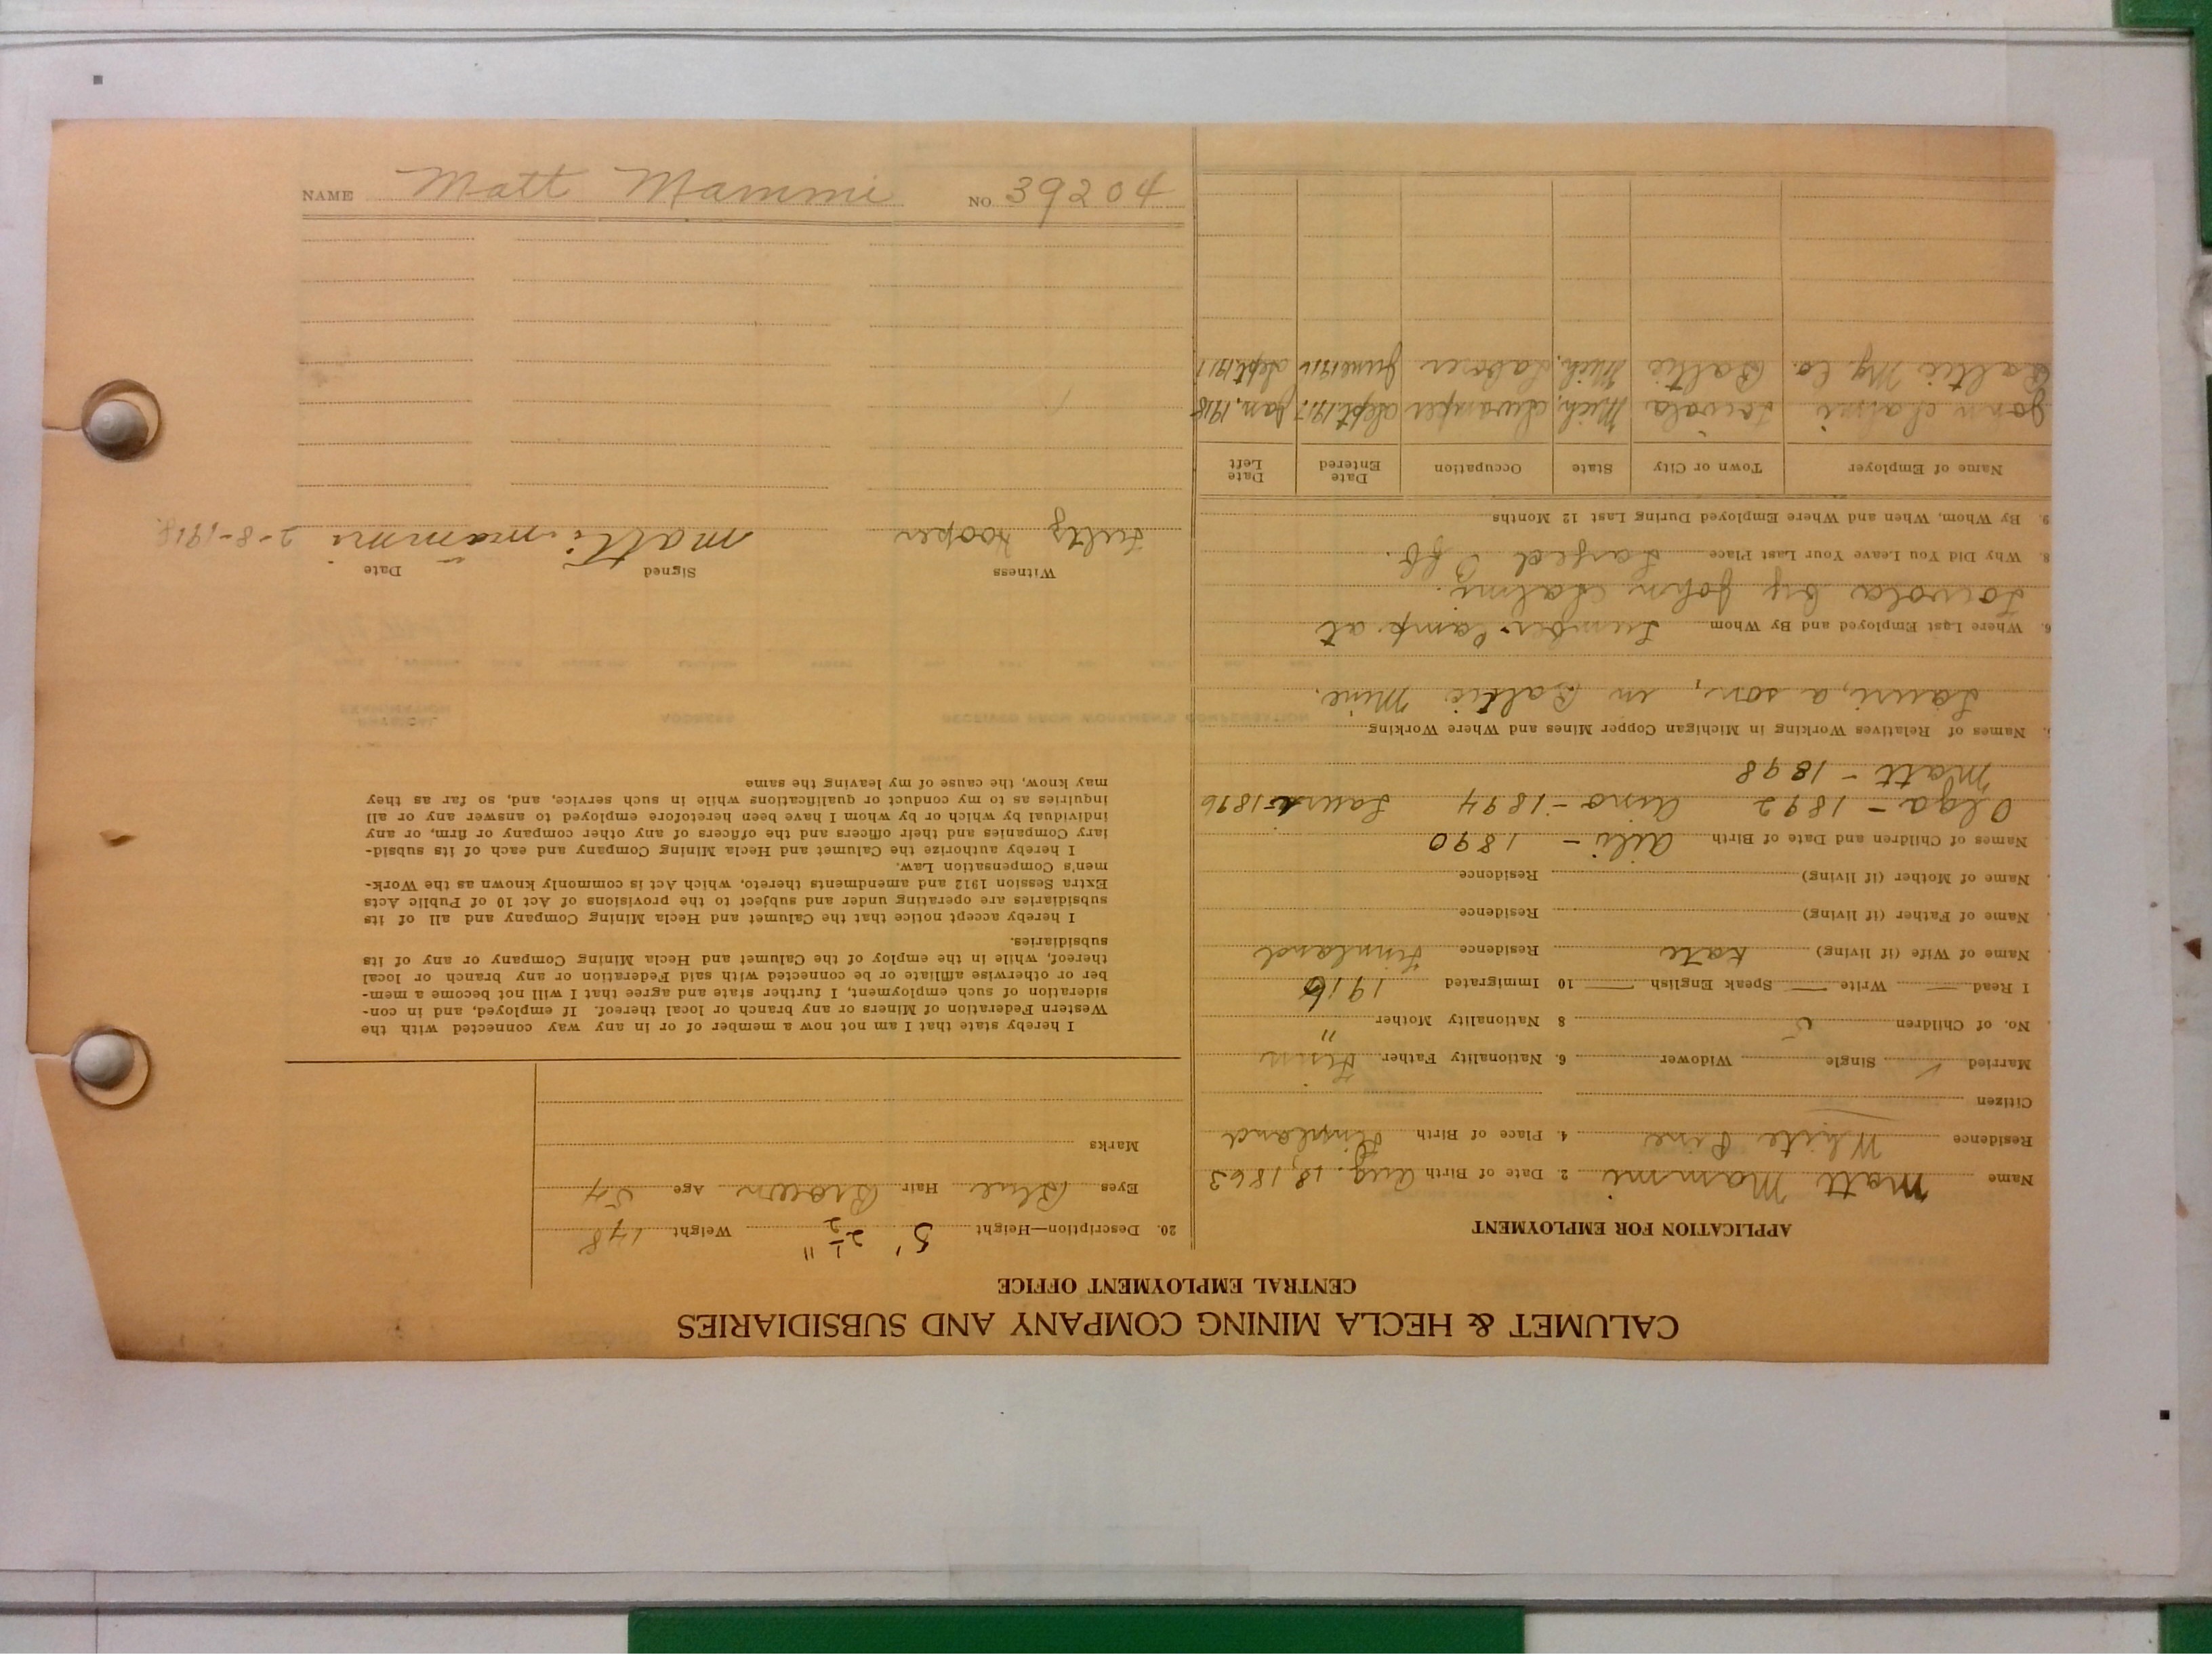 CALUMET & HECLA MINING COMPANY AND SUBSIDIARIES
CENTRAL EMPLOYMENT OFFICE
APPLICATION FOR EMPLOYMENT
Name Matt Mammi 2. Date of Birth Aug. 18, 1863
Residence White Pine 4. Place of Birth Finland
Citizen
Married ✓ Single Widower 6. Nationality Father Finn
No. of Children 5 8 Nationality Mother "
I Read — Write — Speak English — 10 Immigrated 1916
Name of Wife (if living) Kate Residence Finnland
Name of Father (if living) Residence
Name of Mother (if living) Residence
Names of Children and Date of Birth Aili - 1890
Olga - 1892 Aino - 1894 Lauri - 1896
Matt - 1898
Names of Relatives Working in Michigan Copper Mines and Where Working
Lauri, a son, in Baltic Mine.
6. Where Last Employed and By Whom Lumber Camp at
Toivola by John Salmi.
8. Why Did You Leave Your Last Place Layed Off.
9. By Whom, When and Where Employed During Last 12 Months
Name of Employer Town or City State Occupation Date Entered Date Left
John Salmi Toivola Mich. Swamper Sept. 1917 Jan. 1918
Baltic Mg. Co. Baltic Mich. Laborer June 1916 Sept. 1917
20. Description—Height 5' 2½" Weight 148
Eyes Blue Hair Brown Age 54
Marks
I hereby state that I am not now a member of or in any way connected with the
Western Federation of Miners or any branch or local thereof. If employed, and in con-
sideration of such employment, I further state and agree that I will not become a mem-
ber or otherwise affiliate or be connected with said Federation or any branch or local
thereof, while in the employ of the Calumet and Hecla Mining Company or any of its
subsidiaries.
I hereby accept notice that the Calumet and Hecla Mining Company and all of its
subsidiaries are operating under and subject to the provisions of Act 10 of Public Acts
Extra Session 1912 and amendments thereto, which Act is commonly known as the Work-
men's Compensation Law.
I hereby authorize the Calumet and Hecla Mining Company and each of its subsid-
iary Companies and their officers and the officers of any other company or firm, or any
individual by which or by whom I have been heretofore employed to answer any or all
inquiries as to my conduct or qualifications while in such service, and, so far as they
may know, the cause of my leaving the same
Witness Signed Date
Hooper Matti Mammi 2-8-1918.
NAME Matt Mammi NO 39204